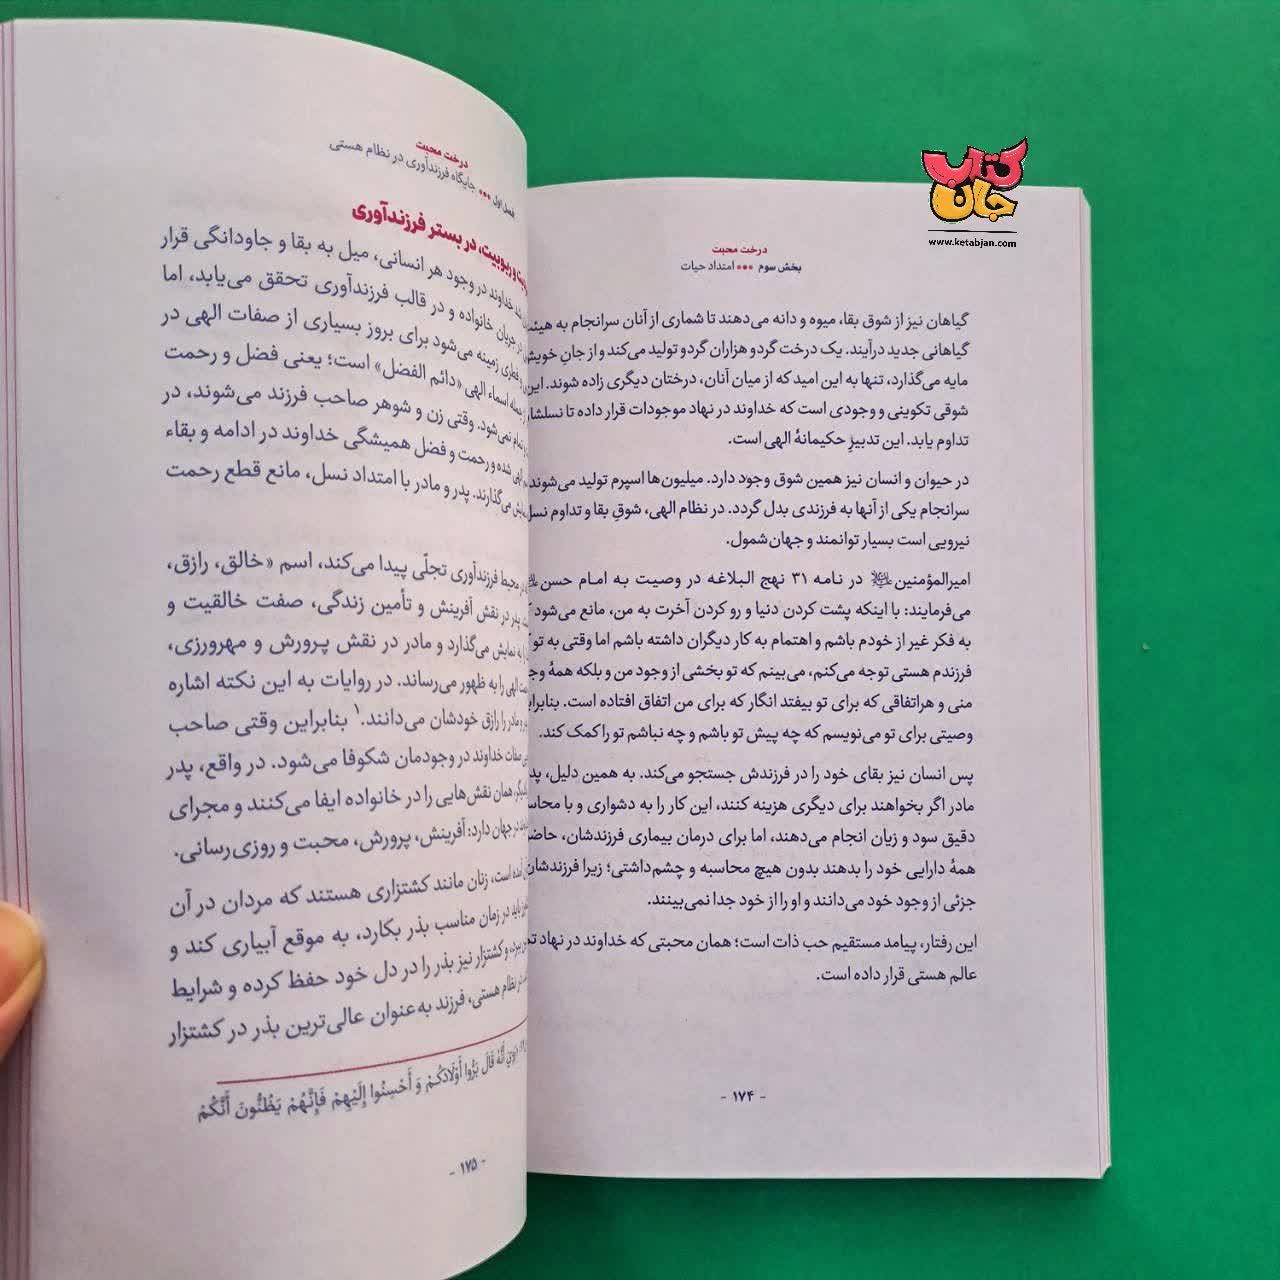 کتاب
جان
www.ketabjan.com
درخت محبت
بخش سوم ••• امتداد حیات
گیاهان نیز از شوق بقاء، میوه و دانه می‌دهند تا شماری از آنان سرانجام به
گیاهانی جدید درآیند. یک درخت گردو هزاران گردو تولید می‌کند و از جانِ خویش
مایه می‌گذارد، تنها به این امید که از میان آنان، درختان دیگری زاده شوند. این
شوقی تکوینی و وجودی است که خداوند در نهاد موجودات قرار داده تا
تداوم یابد. این تدبیرِ حکیمانهٔ الهی است.
در حیوان و انسان نیز همین شوق وجود دارد. میلیون‌ها اسپرم تولید می‌شوند
سرانجام یکی از آنها به فرزندی بدل گردد. در نظام الهی، شوقِ بقا و تداوم نسل
نیرویی است بسیار توانمند و جهان‌شمول.
امیرالمؤمنین در نامه ۳۱ نهج البلاغه در وصیت به امام حسن
می‌فرمایند: با اینکه پشت کردن دنیا و رو کردن آخرت به من، مانع می‌شود
به فکر غیر از خودم باشم و اهتمام به کار دیگران داشته باشم اما وقتی به تو
فرزندم هستی توجه می‌کنم، می‌بینم که تو بخشی از وجود من و بلکه همهٔ
منی و هراتفاقی که برای تو بیفتد انگار که برای من اتفاق افتاده است.
وصیتی برای تو می‌نویسم که چه پیش تو باشم و چه نباشم تو را کمک کند.
پس انسان نیز بقای خود را در فرزندش جستجو می‌کند. به همین دلیل،
مادر اگر بخواهند برای دیگری هزینه کنند، این کار را به دشواری و با
دقیق سود و زیان انجام می‌دهند، اما برای درمان بیماری فرزندشان،
همهٔ دارایی خود را بدهند بدون هیچ محاسبه و چشم‌داشتی؛ زیرا فرزندشان
جزئی از وجود خود می‌دانند و او را از خود جدا نمی‌بینند.
این رفتار، پیامد مستقیم حب ذات است؛ همان محبتی که خداوند در نهاد
عالم هستی قرار داده است.
- ۱۷۴ -
درخت محبت
فصل اول ••• جایگاه فرزندآوری در نظام هستی
و ربوبیت، در بستر فرزندآوری
شد خداوند در وجود هر انسانی، میل به بقا و جاودانگی قرار
در جریان خانواده و در قالب فرزندآوری تحقق می‌یابد، اما
و فطری زمینه می‌شود برای بروز بسیاری از صفات الهی در
جمله اسماء الهی «دائم الفضل» است؛ یعنی فضل و رحمت
تمام نمی‌شود. وقتی زن و شوهر صاحب فرزند می‌شوند، در
الهی شده و رحمت و فضل همیشگی خداوند در ادامه و بقاء
می‌گذارند. پدر و مادر با امتداد نسل، مانع قطع رحمت
محیط فرزندآوری تجلّی پیدا می‌کند، اسم «خالق، رازق،
پدر در نقش آفرینش و تأمین زندگی، صفت خالقیت و
به نمایش می‌گذارد و مادر در نقش پرورش و مهرورزی،
الهی را به ظهور می‌رساند. در روایات به این نکته اشاره
و مادر را رازق خودشان می‌دانند.۱ بنابراین وقتی صاحب
صفات خداوند در وجودمان شکوفا می‌شود. در واقع، پدر
همان نقش‌هایی را در خانواده ایفا می‌کنند و مجرای
در جهان دارد: آفرینش، پرورش، محبت و روزی‌رسانی.
آمده است، زنان مانند کشتزاری هستند که مردان در آن
باید در زمان مناسب بذر بکارد، به موقع آبیاری کند و
و کشتزار نیز بذر را در دل خود حفظ کرده و شرایط
نظام هستی، فرزند به‌عنوان عالی‌ترین بذر در کشتزار
أَنَّهُ قَالَ بَرُّوا أَوْلَادَكُمْ وَ أَحْسِنُوا إِلَيْهِمْ فَإِنَّهُمْ يَظُنُّونَ أَنَّكُمْ
- ۱۷۵ -